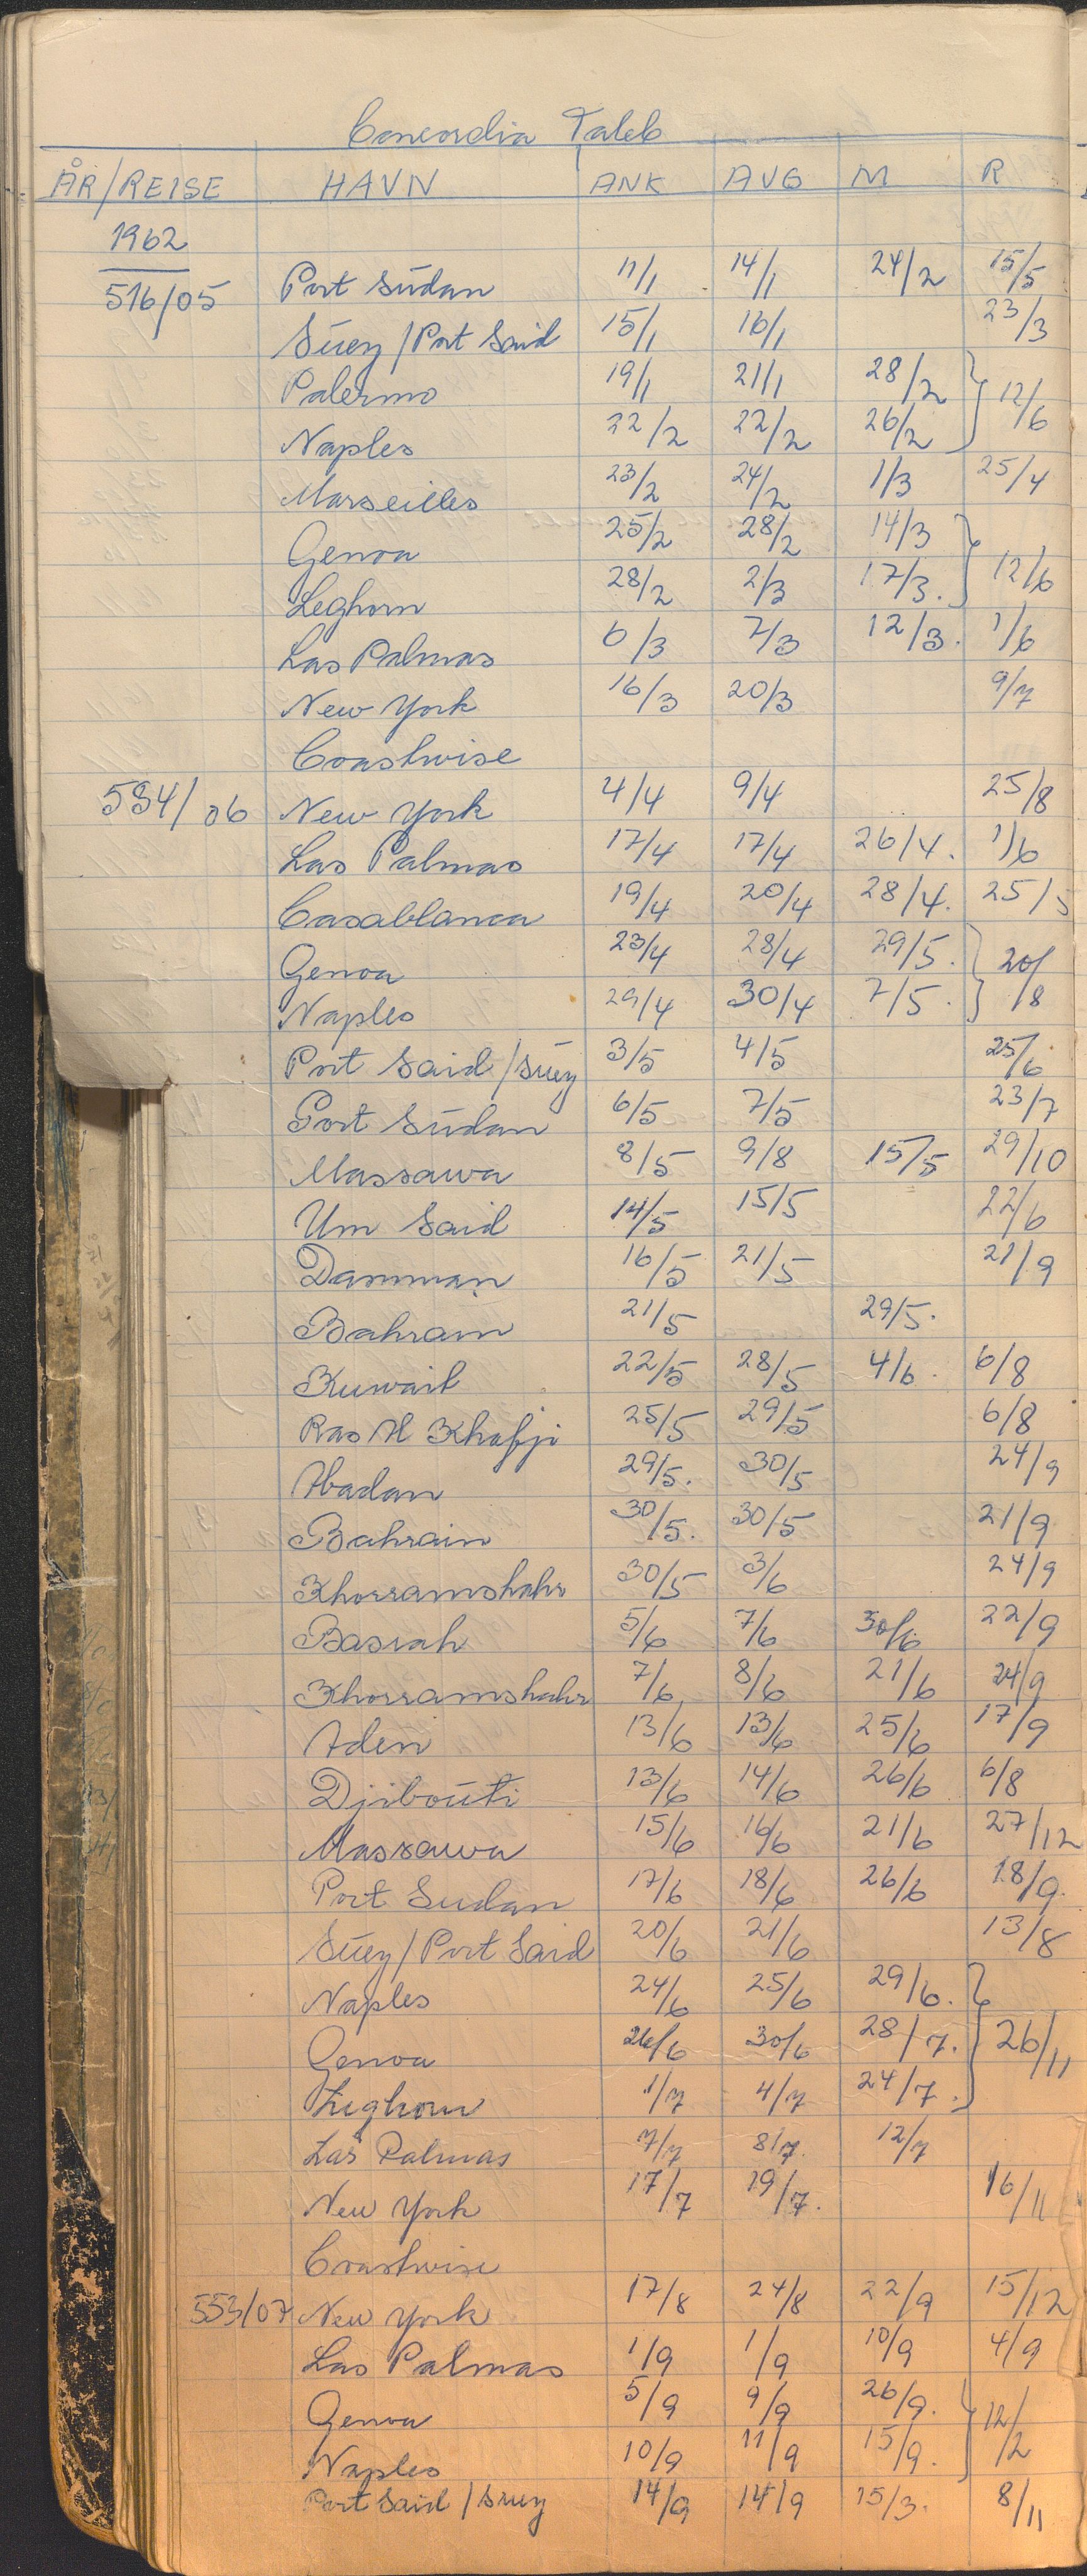 Concordia Taleb
ÅR/REISE HAVN ANK AVG M R
1962
516/05 Port Sudan 11/1 14/1 24/2 15/5
Suez/Port Said 15/1 16/1 23/3
Palermo 19/1 21/1 28/2 } 12/6
Naples 22/2 22/2 26/2
Marseilles 23/2 24/2 1/3 25/4
Genoa 25/2 28/2 14/3 }
Leghorn 28/2 2/3 17/3. 12/6
Las Palmas 6/3 7/3 12/3. 1/6
New York 16/3 20/3 9/7
Coastwise
534/06 New York 4/4 9/4 25/8
Las Palmas 17/4 17/4 26/4. 1/6
Casablanca 19/4 20/4 28/4. 25/5
Genoa 23/4 28/4 29/5. } 20/8
Naples 29/4 30/4 7/5.
Port Said/Suez 3/5 4/5 25/6
Port Sudan 6/5 7/5 23/7
Massawa 8/5 9/8 15/5 29/10
Um Said 14/5 15/5 22/6
Damman 16/5 21/5 21/9
Bahrain 21/5 29/5.
Kuwait 22/5 28/5 4/6. 6/8
Ras Al Khafji 25/5 29/5 6/8
Abadan 29/5. 30/5 24/9
Bahrain 30/5. 30/5 21/9
Khorramshahr 30/5 3/6 24/9
Basrah 5/6 7/6 30/6 22/9
Khorramshahr 7/6 8/6 21/6 24/9
Aden 13/6 13/6 25/6 17/9
Djibouti 13/6 14/6 26/6 6/8
Massawa 15/6 16/6 21/6 27/12
Port Sudan 17/6 18/6 26/6 18/9.
Suez/Port Said 20/6 21/6 13/8
Naples 24/6 25/6 29/6. }
Genoa 26/6 30/6 28/7. 26/11
Leghorn 1/7 4/7 24/7.
Las Palmas 7/7 8/7. 12/7
New York 17/7 19/7. 16/11
Coastwise
553/07 New York 17/8 24/8 22/9 15/12
Las Palmas 1/9 1/9 10/9 4/9
Genoa 5/9 9/9 26/9. } 12/2
Naples 10/9 11/9 15/9.
Port Said/Suez 14/9 14/9 15/3. 8/11